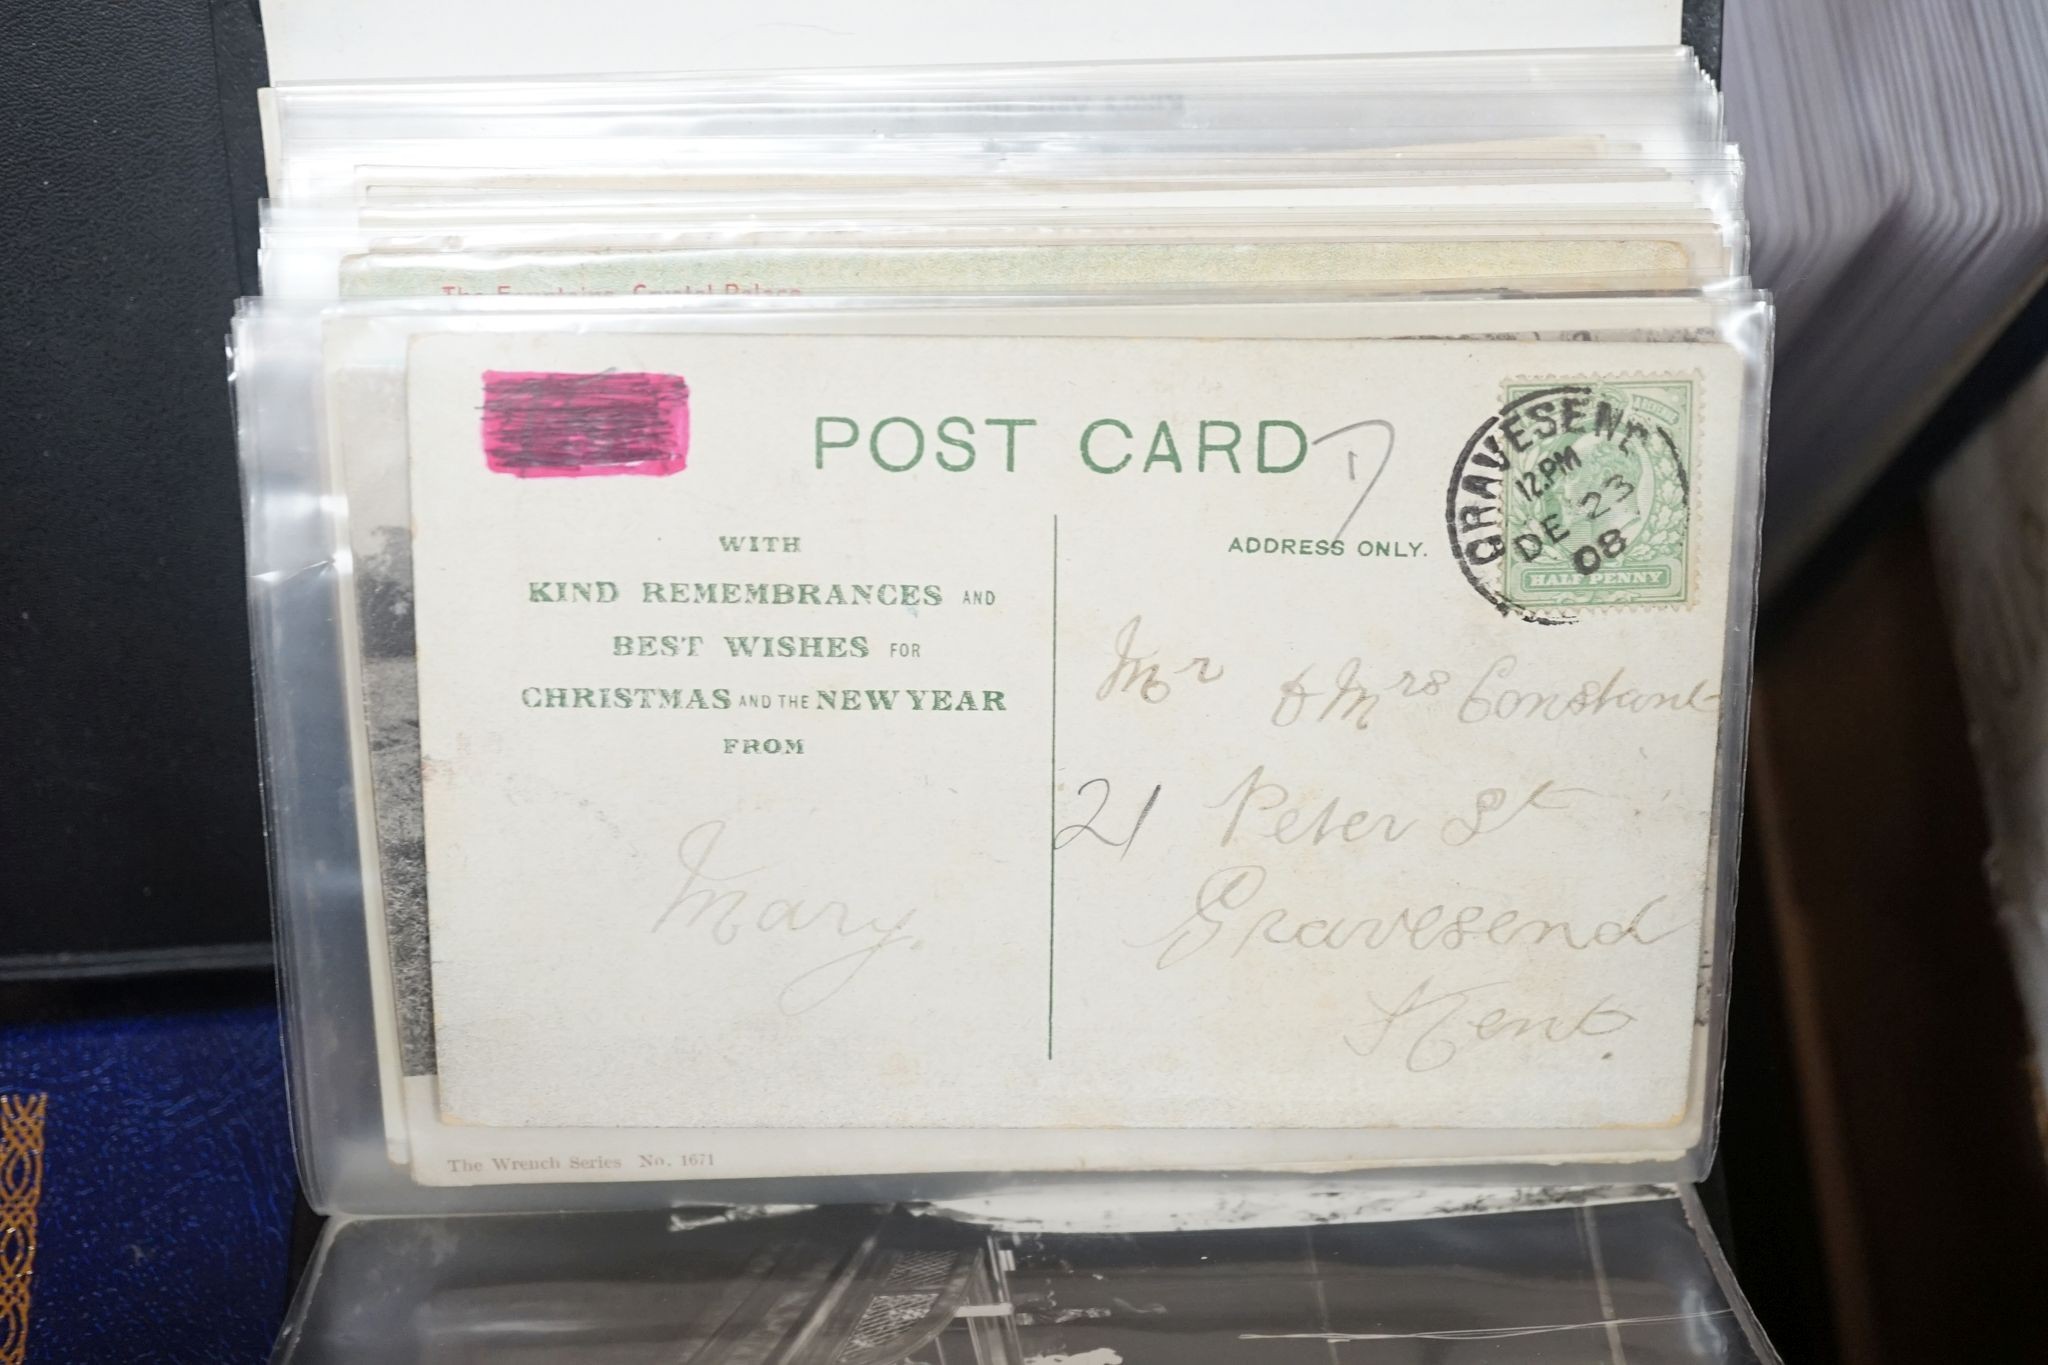 The Fountains, Crystal Palace
POST CARD
WITH
KIND REMEMBRANCES AND
BEST WISHES FOR
CHRISTMAS AND THE NEW YEAR
FROM
Mary.
ADDRESS ONLY.
GRAVESEND
12.PM
DE 23
08
HALFPENNY
Mr & Mrs Constant
21 Peter St
Gravesend
Kent.
The Wrench Series No. 1671